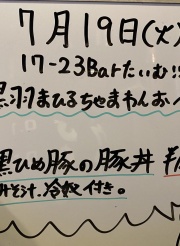 7月19日(火)
17-23Barたいむ!!
黒羽まひるちゃまわんおぺ
黒ひめ豚の豚丼
みそ汁、冷奴付き。